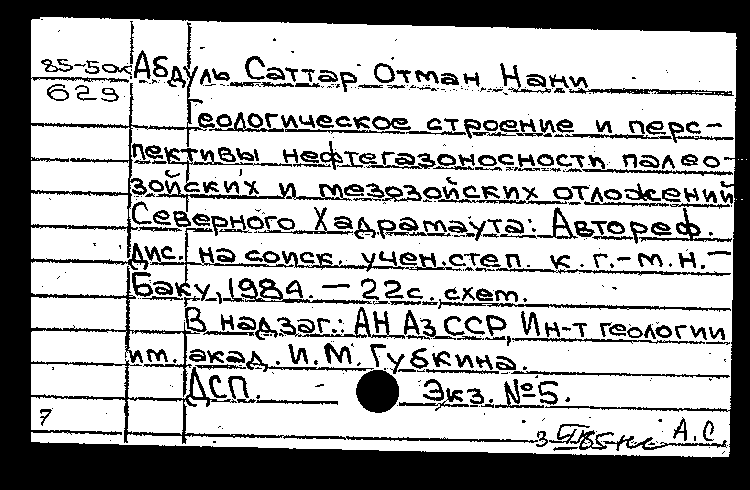 85-50к Абдуль Саттар Отман Нани
629
Геологическое строение и перс-
пективы нефтегазоносности палео-
зойских и мезозойских отложений
Северного Хадрамаута: Автореф.
дис. на соиск. учен.степ. к.г.-м.н.-
Баку, 1984. - 22с.,схем.
В надзаг.: АН АзССР, Ин-т геологии
им. акад. И.М. Губкина.
ДСП. Экз. №5.
7
А.С.